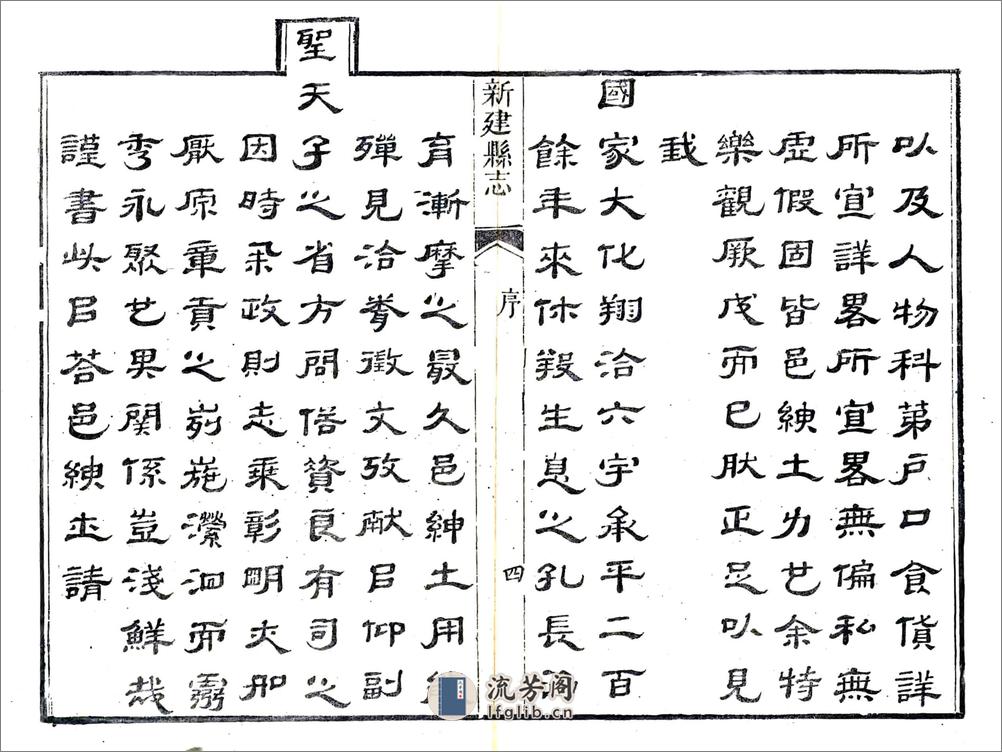 以及人物科第戶口食貨詳
所宜詳畧所宜畧無偏私無
虛假固皆邑紳士力也余特
樂觀厥成而已肰正足以見
我
國家大化翔洽六宇承平二百
餘年來休養生息之孔長
新建縣志 序 四
育漸摩之最久邑紳士用
殫見洽聞徵文攷献㠯仰副
聖天子之省方問俗資良有司之
因時釆政則志乘彰明亦如
厭原章貢之峛崺瀠洄而靈
秀永聚也其關係豈淺鮮哉
謹書此㠯荅邑紳㞢請
流芳阁
lfglib.cn